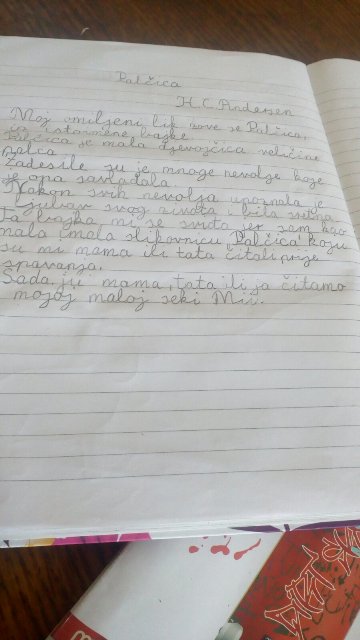 Palčica
H. C. Andersen
Moj omiljeni lik zove se Palčica,
iz istoimene bajke.
Palčica je mala djevojčica veličine
palca.
Zadesile su je mnoge nevolje koje
je ona savladala.
Nakon svih nevolja upoznala je
ljubav svog života i bila sretna.
Ta bajka mi se sviđa jer sam kao
mala imala slikovnicu "Palčica" koju
su mi mama ili tata čitali prije
spavanja.
Sada ju mama, tata ili ja čitamo
mojoj maloj seki Mii.